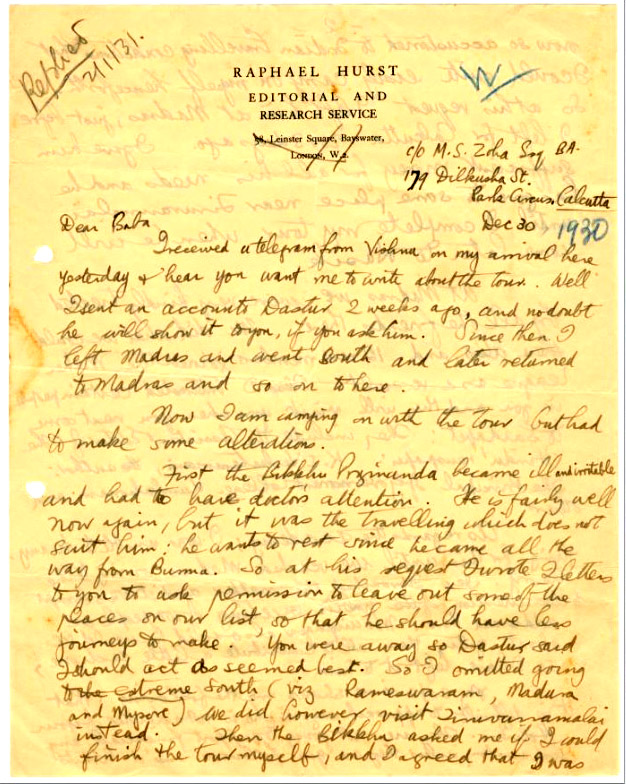 Replied
2/1/31.
W
RAPHAEL HURST
EDITORIAL AND
RESEARCH SERVICE
38, Leinster Square, Bayswater,
London, W.2.
c/o M.S. Zoha Esq BA.
179 Dilkusha St.
Park Circus, Calcutta
Dec 30 1930
Dear Baba,
I received a telegram from Vishnu on my arrival here
yesterday & hear you want me to write about the tour. Well
I sent an account to Dastur 2 weeks ago, and no doubt
he will show it to you, if you ask him. Since then I
left Madras and went South and later returned
to Madras and so on to here.
Now I am carrying on with the tour but had
to make some alterations.
First the Bikkhu became ill and irritable
and had to have doctors attention. He is fairly well
now again, but it was the travelling which does not
suit him; he wants to rest since he came all the
way from Burma. So at his request I wrote 2 letters
to you to ask permission to leave out some of the
places on our list, so that he should have less
journeys to make. You were away so Dastur said
I should act as seemed best. So I omitted going
to the extreme South (viz Rameswaram, Madura
and Mysore) We did however visit Tiruvannamalai
instead. Then the Bikkhu asked me if I could
finish the tour myself, and I agreed that I was